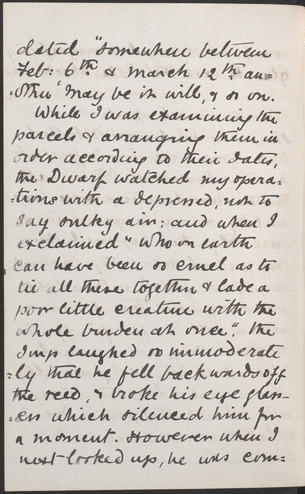 dated "somewhere between
Feb: 6th & March 12th an=
=other" may be it will, & so on.
While I was examining the
parcels & arranging them in
order according to their dates,
the Dwarf watched my opera=
=tions with a depressed, not to
say sulky air; and when I
exclaimed "Who on earth
can have been so cruel as to
tie all these together & lade a
poor little creature with the
whole burden at once", the
Imp laughed so immoderate
=ly that he fell backwards off
the reed, & broke his eye glass=
=es which silenced him for
a moment. However when I
next looked up, he was com=